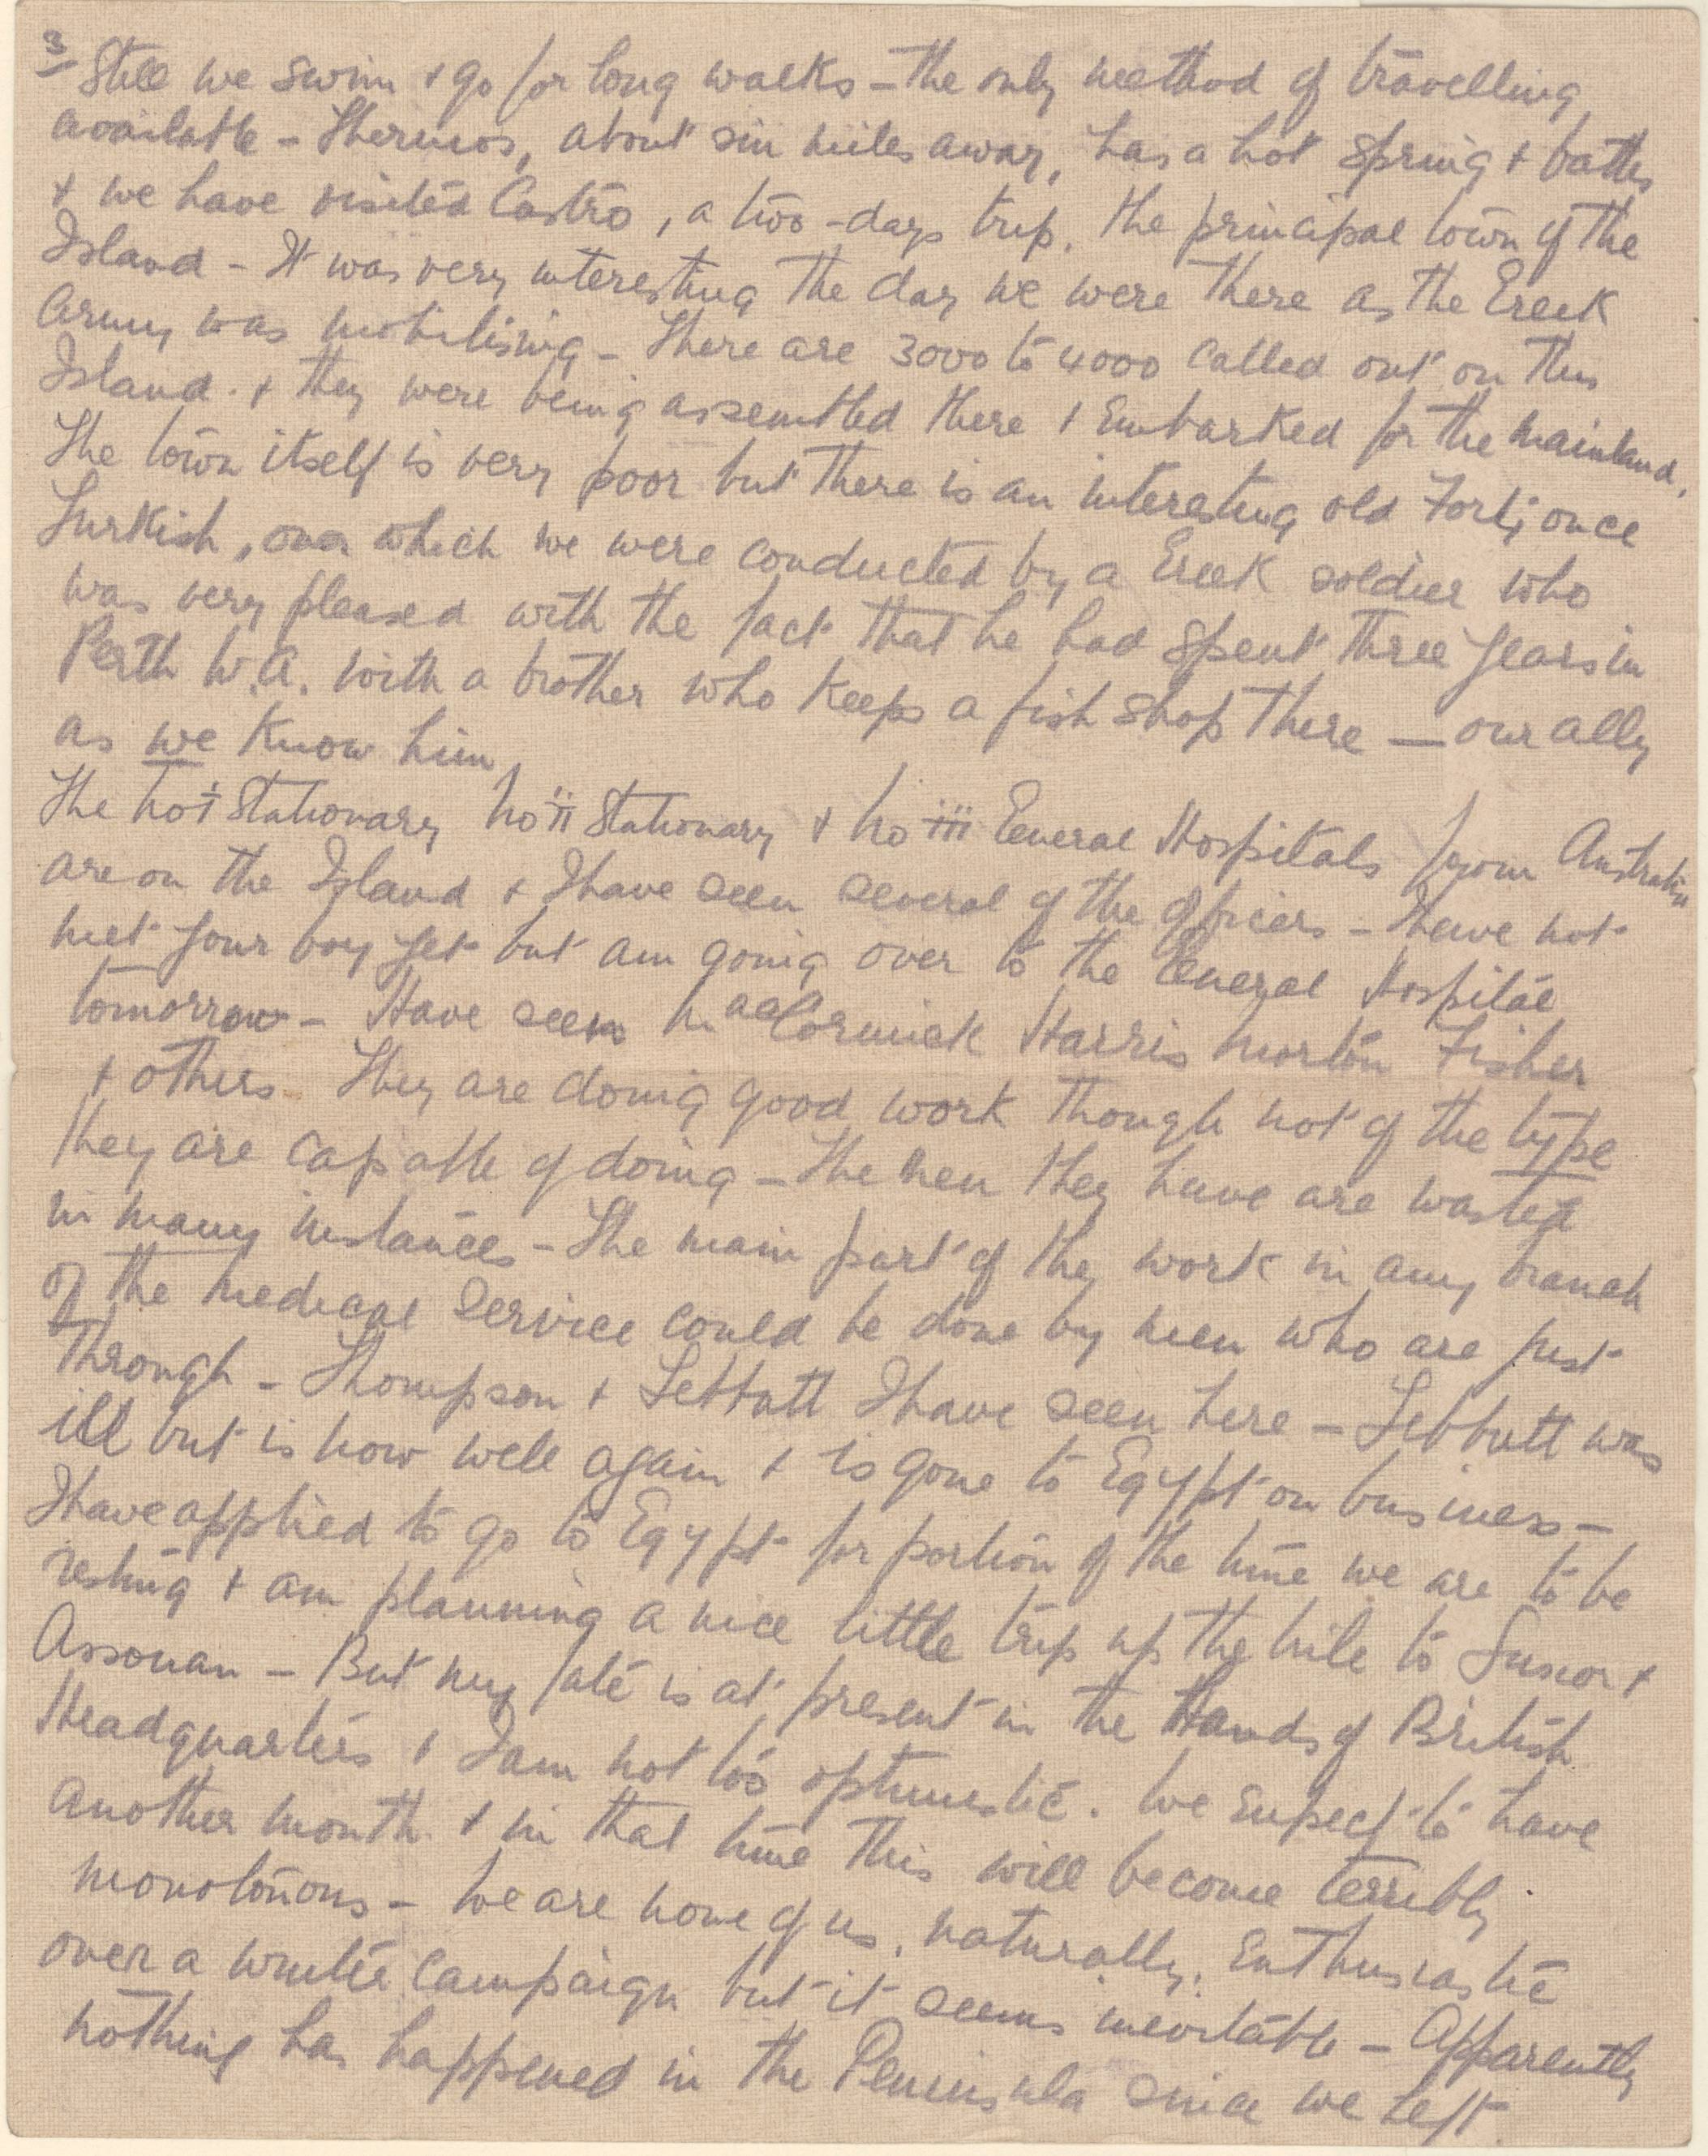 3
Still we swim & go for long walks – the only method of travelling
available – Thermos, about six miles away, has a hot spring & baths
& we have visited Castro, a two-days trip, the principal town of the
Island – It was very interesting the day we were there as the Greek
Army was mobilising – There are 3000 to 4000 called out on this
Island. & they were being assembled there & Embarked for the mainland.
The town itself is very poor but there is an interesting old Fort, once
Turkish, over which we were conducted by a Greek soldier who
was very pleased with the fact that he had spent three years in
Perth W.A. with a brother who keeps a fish shop there — our ally
as we know him.
The No i Stationary No ii Stationary & No iii General Hospitals from Australia
are on the Island & I have seen several of the officers – Have not
met your boy yet but am going over to the General Hospital
tomorrow – Have seen MacCormick Harris Morton Fisher
& others. They are doing good work though not of the type
they are capable of doing – The men they have are wasted
in many instances – The main part of the work in any branch
of the medical service could be done by men who are just
through – Thompson & Tebbutt I have seen here – Tebbutt was
ill but is now well again & is gone to Egypt on business –
I have applied to go to Egypt for portion of the time we are to be
resting & am planning a nice little trip up the Nile to Luxor &
Assouan – But my fate is at present in the Hands of British
Headquarters & I am not too optimistic. We expect to have
another month & in that time this will become terribly
monotonous – We are none of us, naturally, Enthusiastic
over a winter campaign but it seems inevitable – Apparently
nothing has happened in the Peninsula since we left.